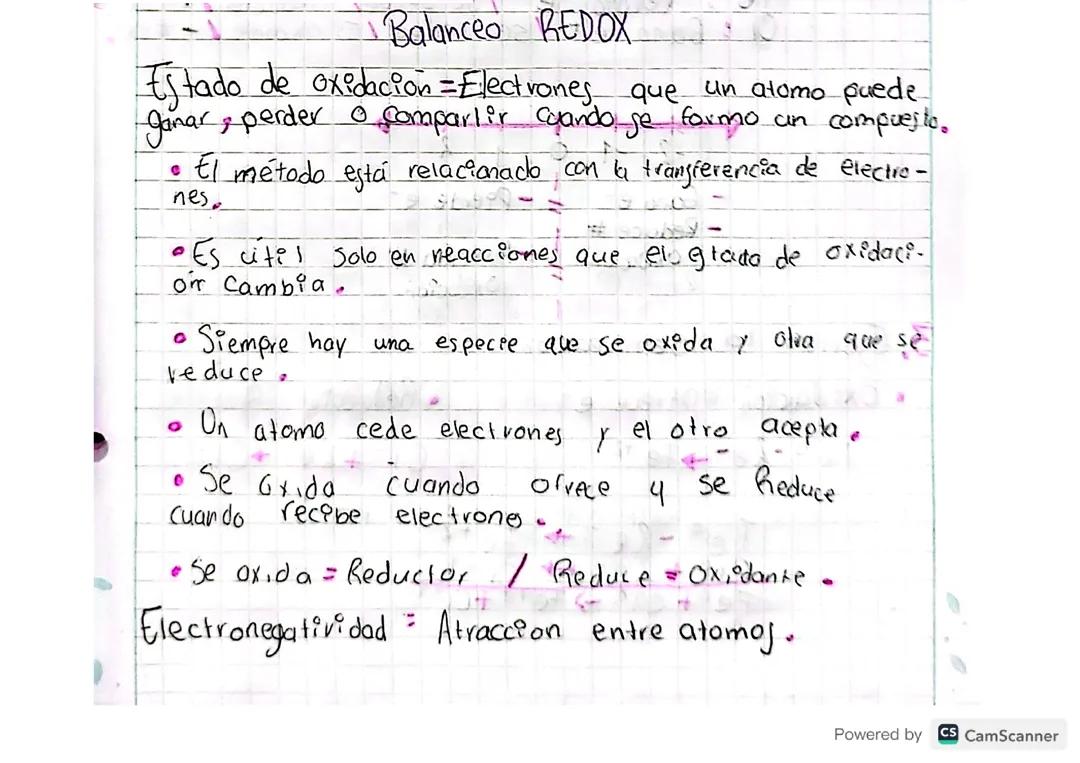 Balanceo REDOX
Estado de oxidación = Electrones que un atomo puede
ganar, perder o compartir cuando se formo un compuesto.
• El método está relacionado con la transferencia de electro-
nes.
• Es útil solo en reacciones que el estado de oxidaci-
ón cambia.
• Siempre hay una especie que se oxida y otra que se
reduce.
• Un atomo cede electrones y el otro acepta.
• Se oxida cuando ofrece y se Reduce
cuando recibe electrones.
• Se oxida = Reductor / Reduce = Oxidante.
Electronegatividad = Atraccion entre atomos.
Powered by CS CamScanner